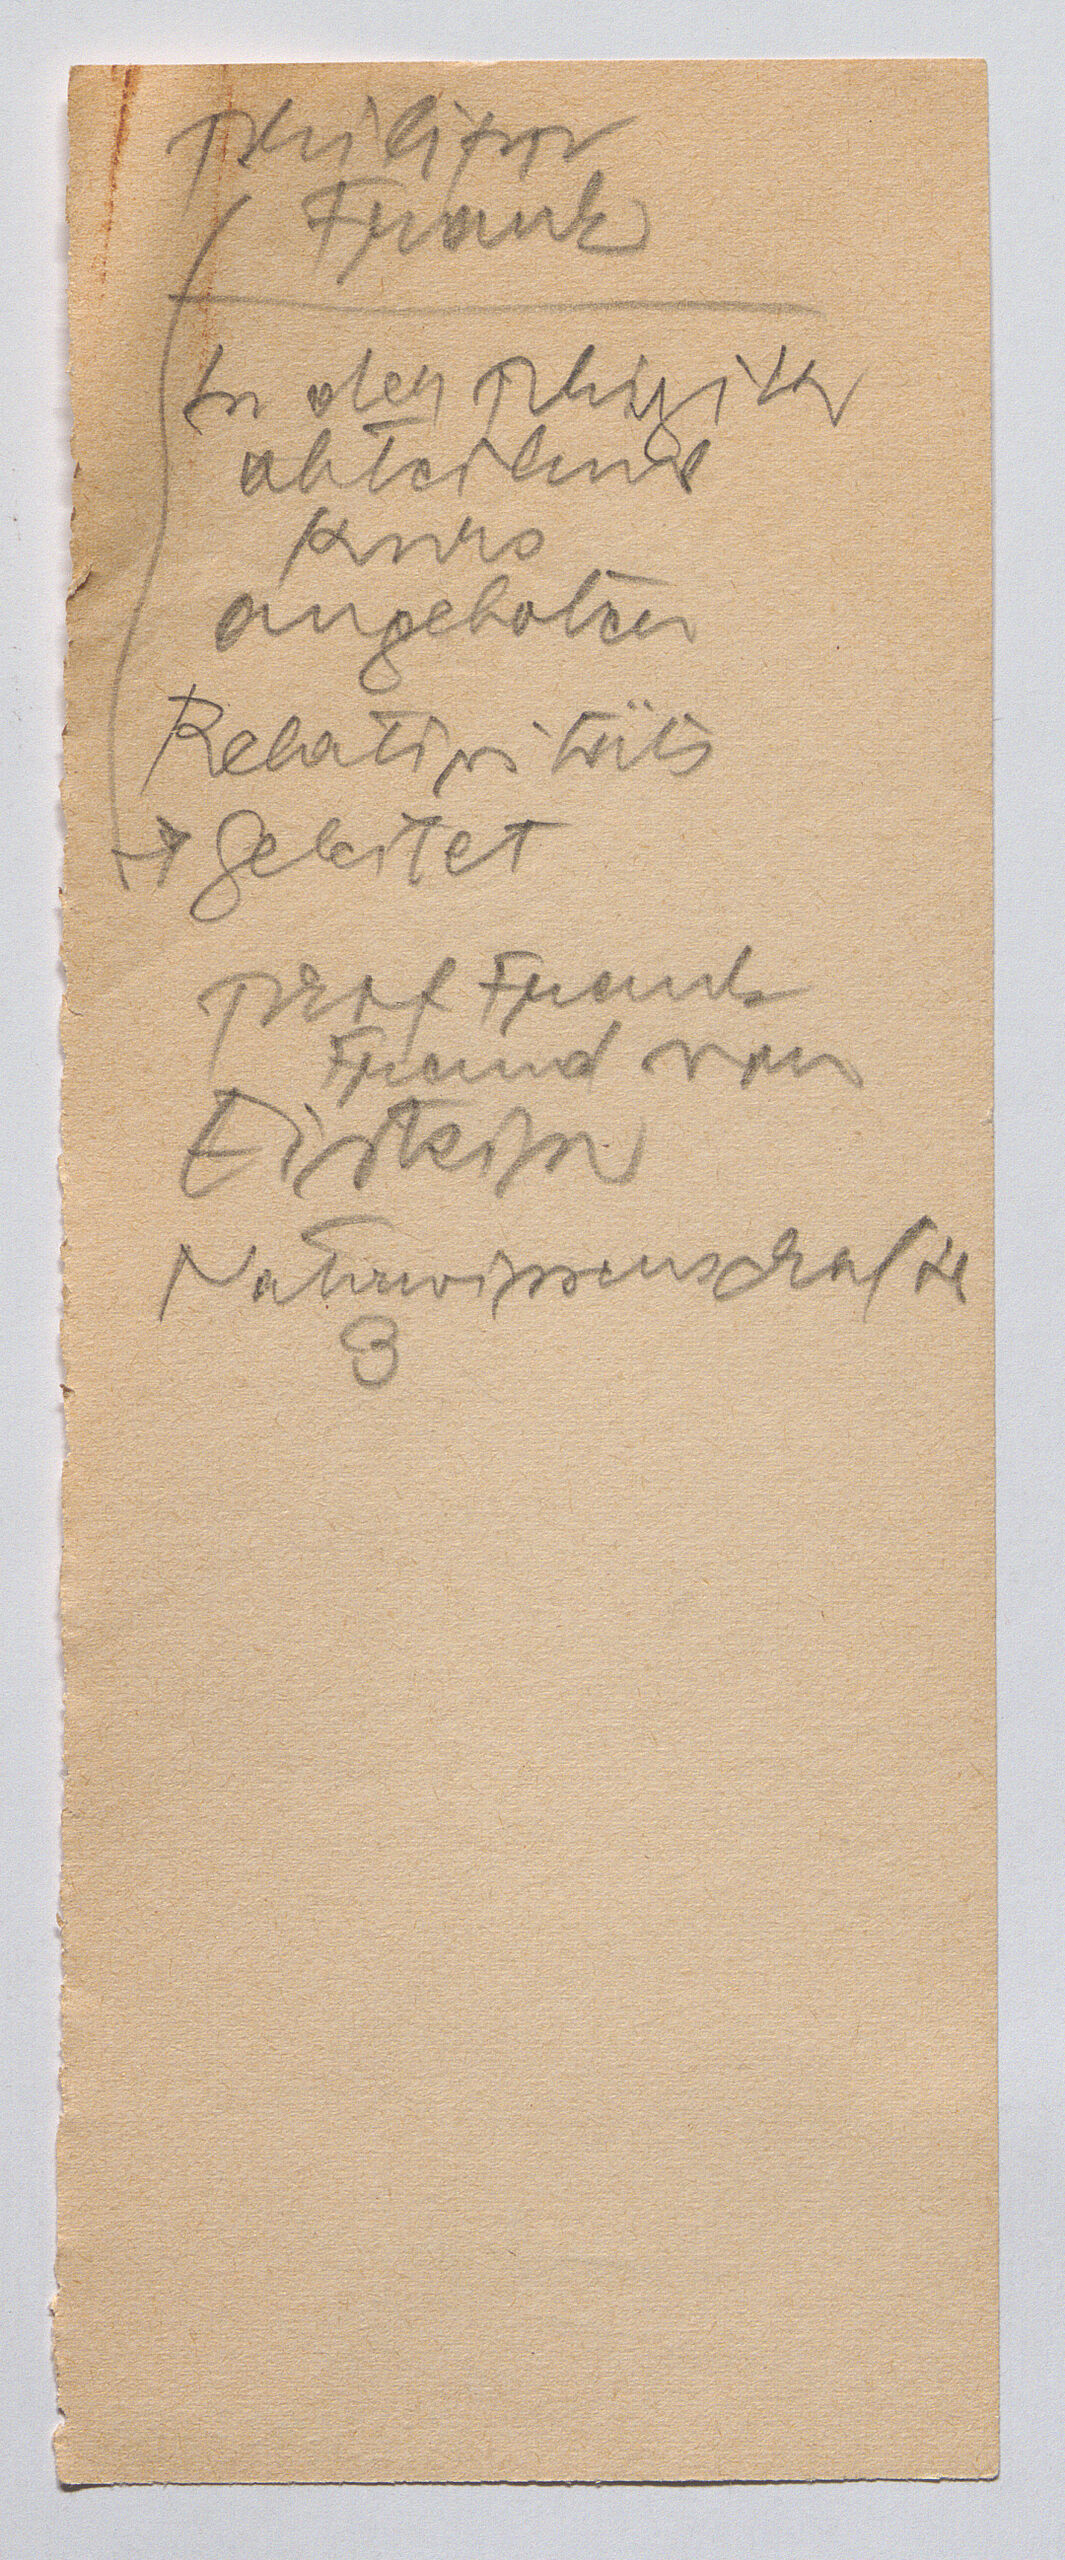 Philipp
Frank
In der Phisik
abteilung
Kurs
angeboten
Relativitäts
→ geleitet
Prof Frank
Freund von
Einstein
Naturwissenschafte
3